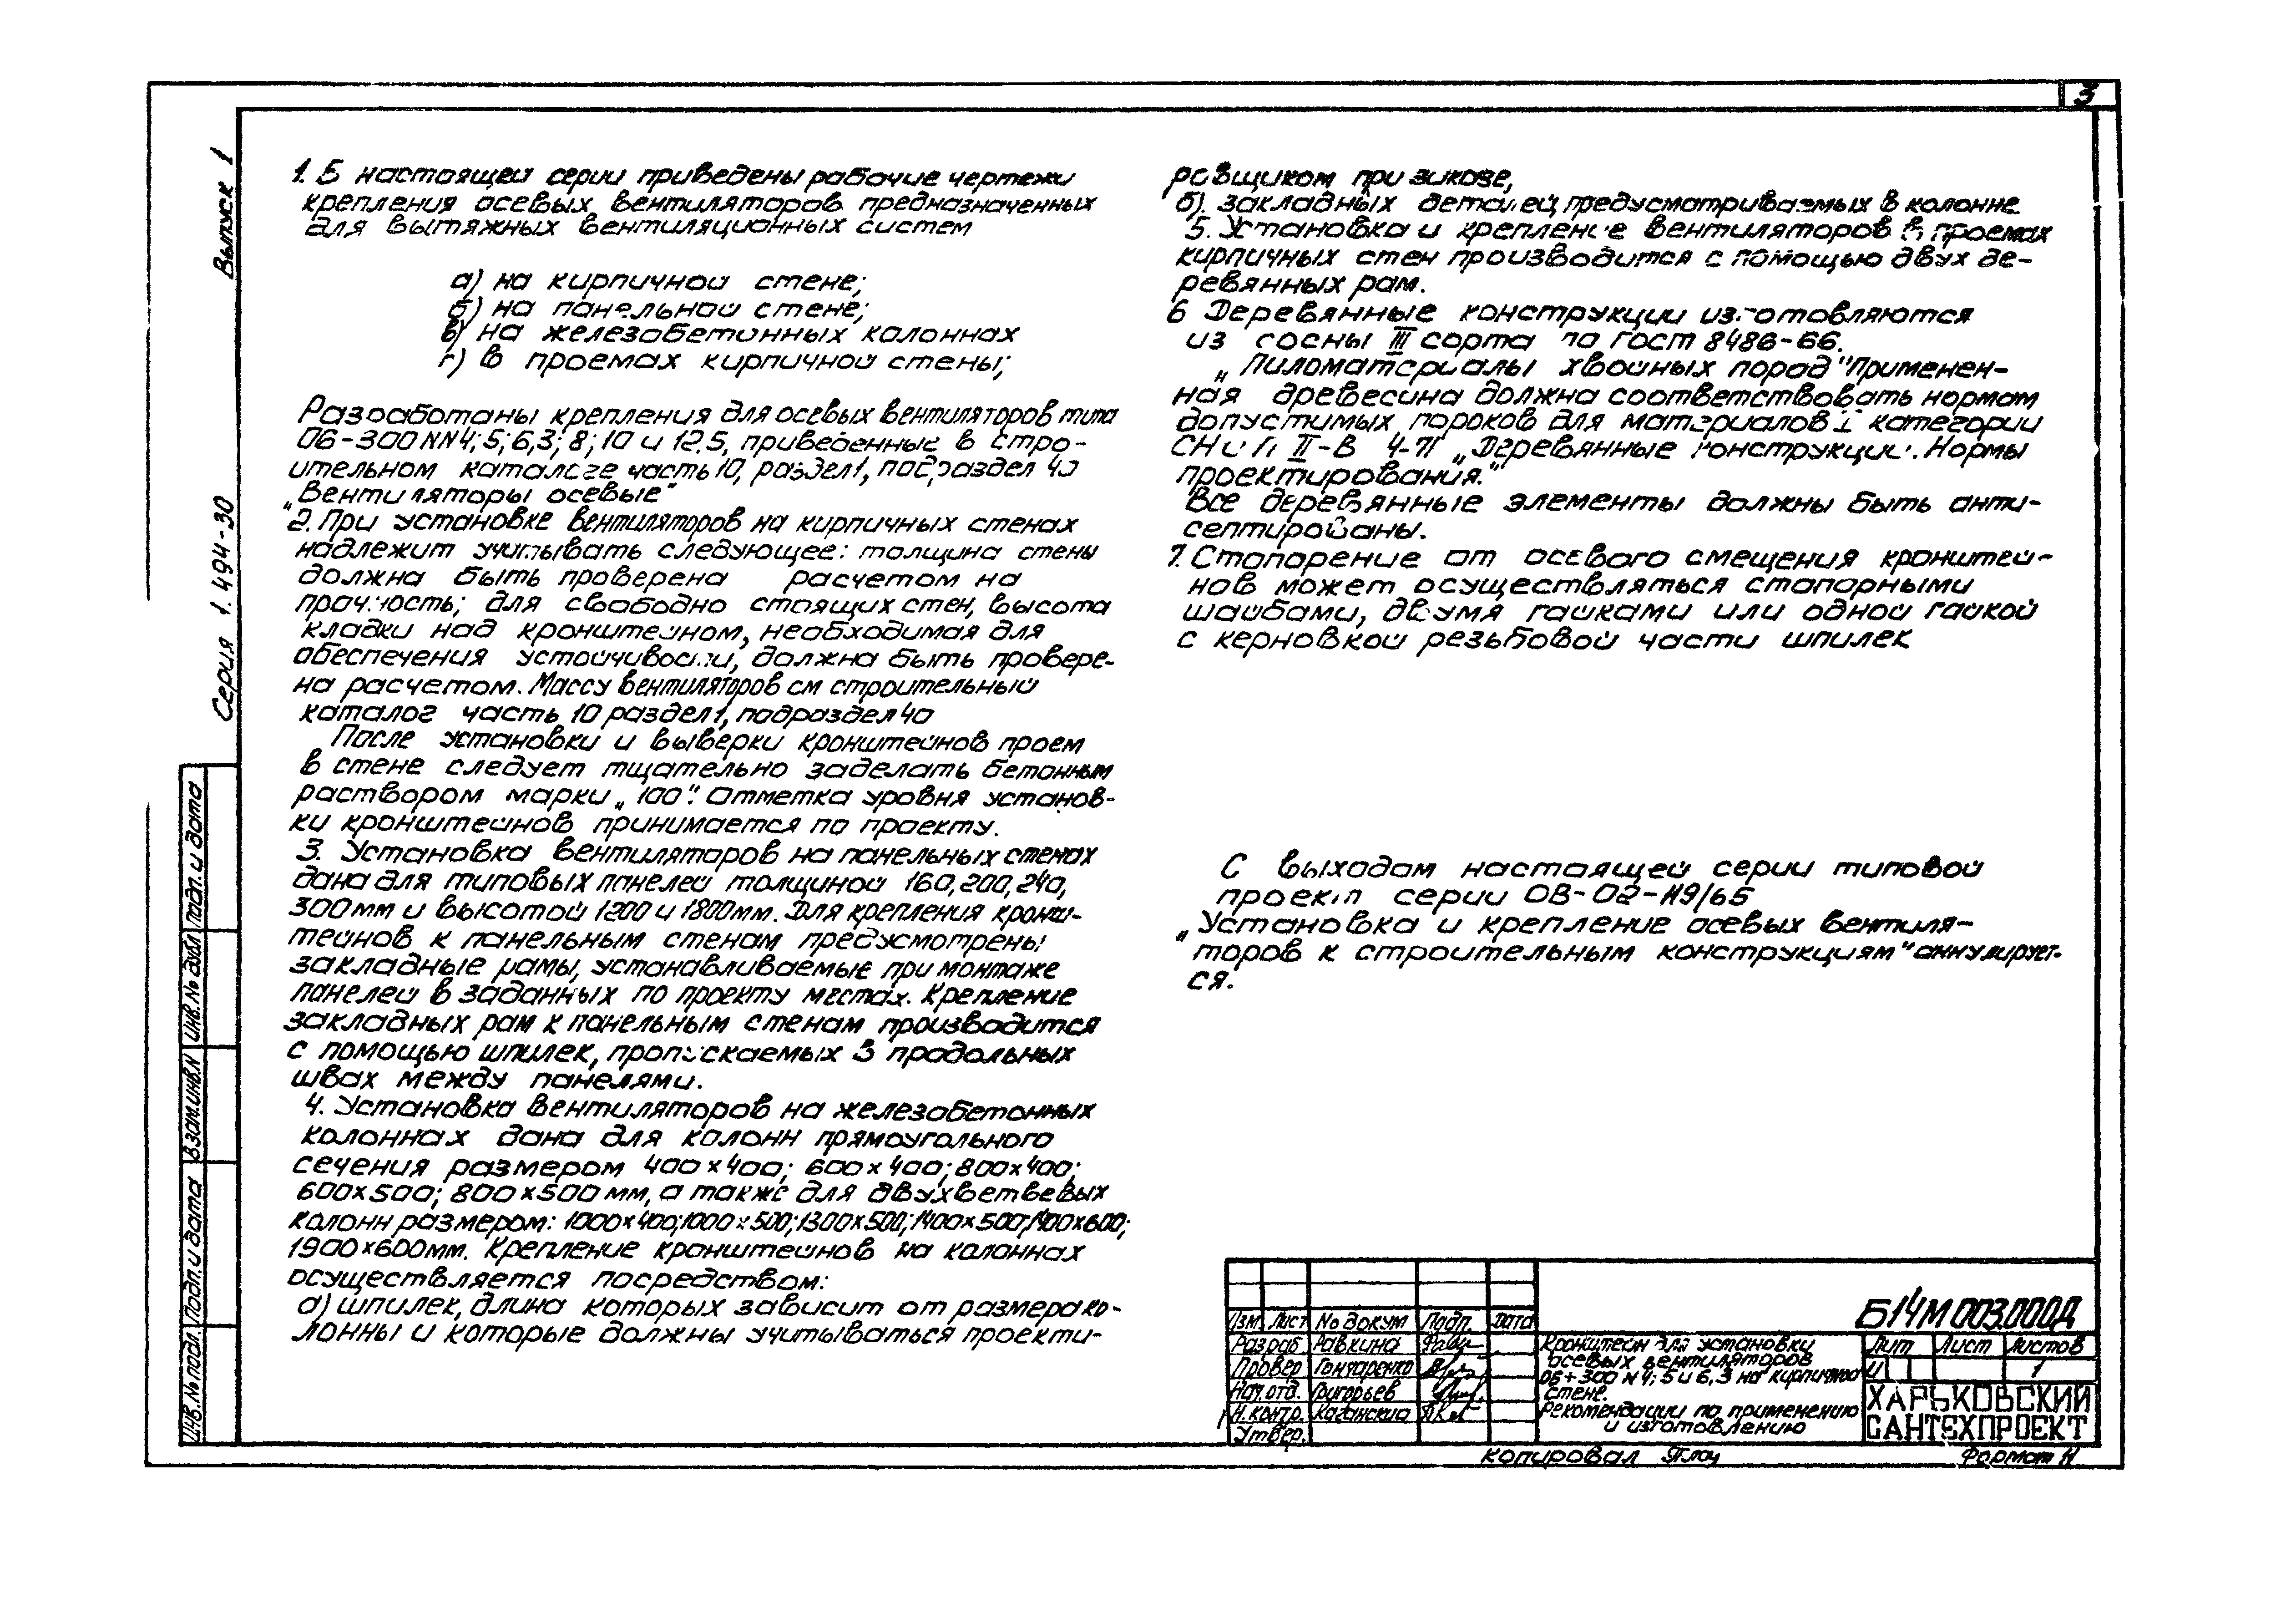 3
Выпуск 1
Серия 1.494-30
1. В настоящей серии приведены рабочие чертежи
крепления осевых вентиляторов предназначенных
для вытяжных вентиляционных систем
а) на кирпичной стене;
б) на панельной стене;
в) на железобетонных колоннах
г) в проемах кирпичной стены;
Разработаны крепления для осевых вентиляторов типа
06-300 NN4; 5; 6,3; 8; 10 и 12.5, приведенные в стро-
ительном каталоге часть 10, раздел 1, подраздел 40
„Вентиляторы осевые"
2. При установке вентиляторов на кирпичных стенах
надлежит учитывать следующее: толщина стены
должна быть проверена расчетом на
прочность; для свободно стоящих стен, высота
кладки над кронштейном, необходимая для
обеспечения устойчивости, должна быть провере-
на расчетом. Массу вентиляторов см строительный
каталог часть 10 раздел 1, подраздел 40
После установки и выверки кронштейнов проем
в стене следует тщательно заделать бетонным
раствором марки „100". Отметка уровня установ-
ки кронштейнов принимается по проекту.
3. Установка вентиляторов на панельных стенах
дана для типовых панелей толщиной 160, 200, 240,
300мм и высотой 1200 и 1800мм. Для крепления кронш-
тейнов к панельным стенам предусмотрены
закладные рамы, устанавливаемые при монтаже
панелей в заданных по проекту местах. Крепление
закладных рам к панельным стенам производится
с помощью шпилек, пропускаемых в продольных
швах между панелями.
4. Установка вентиляторов на железобетонных
колоннах дана для колонн прямоугольного
сечения размером 400×400; 600×400; 800×400;
600×500; 800×500 мм, а также для двухветвевых
колонн размером: 1000×400; 1000×500; 1300×500; 1400×500; 1400×600;
1900×600мм. Крепление кронштейнов на колоннах
осуществляется посредством:
а) шпилек, длина которых зависит от размера ко-
лонны и которые должны учитываться проекти-
ровщиком при заказе,
б). закладных деталей, предусматриваемых в колонне
5. Установка и крепление вентиляторов в проемах
кирпичных стен производится с помощью двух де-
ревянных рам.
6 Деревянные конструкции изготовляются
из сосны III сорта по ГОСТ 8486-66.
„Пиломатериалы хвойных пород" Применен-
ная древесина должна соответствовать нормам
допустимых пороков для материалов I категории
СНиП II-В 4-71 „Деревянные конструкции. Нормы
проектирования."
Все деревянные элементы должны быть анти-
септированы.
7. Стопорение от осевого смещения кронштей-
нов может осуществляться стопорными
шайбами, двумя гайками или одной гайкой
с керновкой резьбовой части шпилек
С выходом настоящей серии типовой
проект серии ОВ-02-119/65
„Установка и крепление осевых вентиля-
торов к строительным конструкциям" аннулирует-
ся.
Инв.№ подл. Подп. и дата Взам.инв.N Инв.№ дубл Подп. и дата
Б14М003.000Д
Изм. Лист № докум Подп. Дата
Разраб. Равкина
Провер Гончаренко
Нач.отд. Григорьев
Н.контр. Каганский
Утвер.
Кронштейн для установки
осевых вентиляторов
06+300 N4; 5 и 6,3 на кирпичной
стене.
Рекомендации по применению
и изготовлению
Лит Лист Листов
И 1
ХАРЬКОВСКИЙ
САНТЕХПРОЕКТ
Копировал Формат